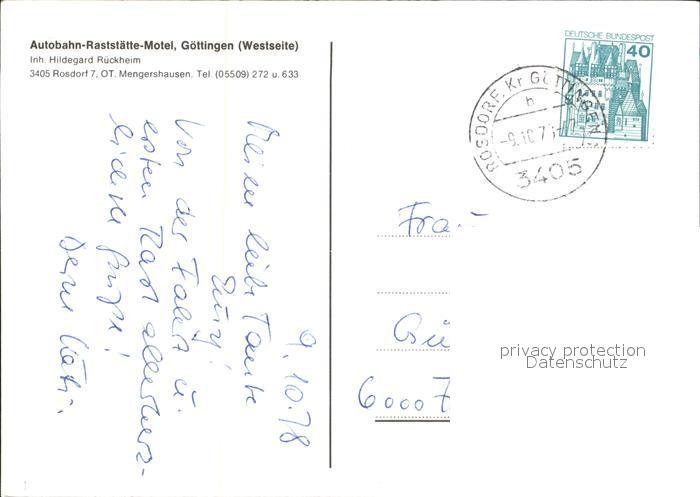 Autobahn-Raststätte-Motel, Göttingen (Westseite)
Inh. Hildegard Rückheim
3405 Rosdorf 7, OT. Mengershausen. Tel. (05509) 272 u. 633
DEUTSCHE BUNDESPOST
40
ROSDORF, Kr GÖTTINGEN
h
-9.10.7
3405
9.10.78
Meine liebe Tante
Von der Fahrt u.
ersten Rast allerherz-
lichste Grüße!
Deine
Frau
Gü
6000 7
privacy protection
Datenschutz